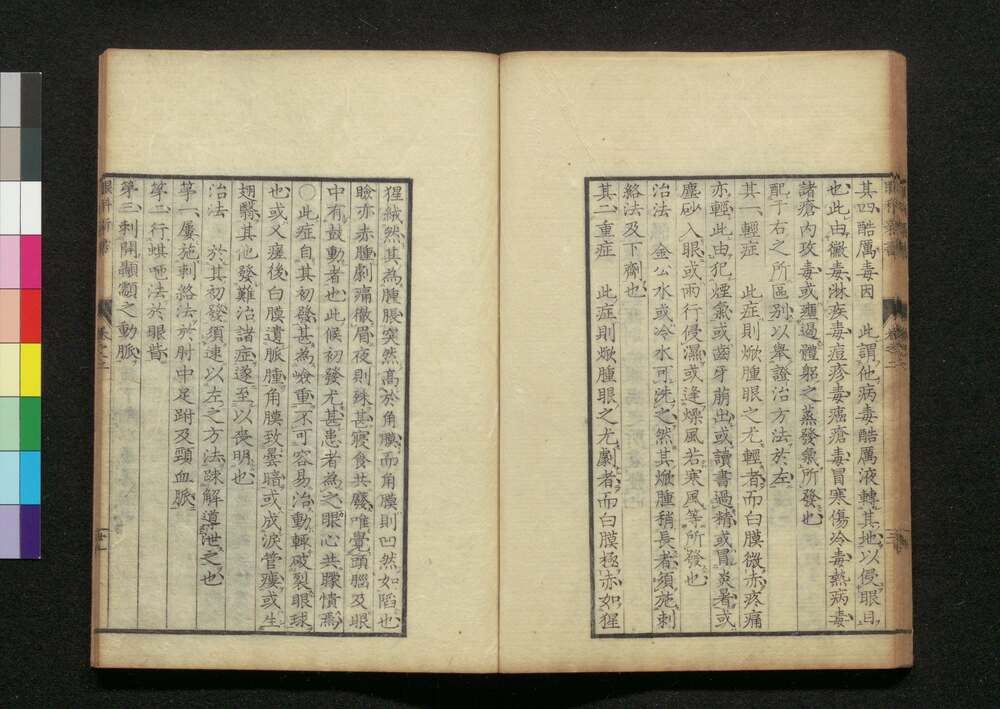 其四、酷厲毒因　此謂他病毒酷厲液轉其地以侵眼目
也、此由黴毒、淋疾毒、痘疹毒、癌瘡毒、冒寒傷冷毒、熱病毒、
諸瘡內攻毒、或壅遏體軀之蒸發氣所發也、
配于右之所區別、以舉證治方法於左、
其一、輕症　此症則焮腫眼之尤輕者、而白膜微赤疼痛
亦輕、此由犯煙氣、或齒牙萠出、或讀書過精、或冒炎暑、或
塵砂入眼、或雨行侵濕、或逢燥風若寒風等所發也、
治法　金公水或冷水可洗之、然其焮腫稍長者、須施刺
絡法及下劑也
其二、重症　此症則焮腫眼之尤劇者、而白膜極赤如猩
猩絨、然其為腫脹突然高於角膜、而角膜則凹然如陷也、
瞼亦赤腫劇痛徹眉、夜則殊甚、寢食共廢、唯覺頭腦及眼
中有鼓動者也、此候初發尤甚、患者為之眼心共朦憒焉
〇此症自其初發甚為嶮重、不可容易治、動輒破裂眼球、
也、或又瘥後白膜遺脈腫、角膜致曇暗、或成淚管瘻、或生
翅醫、其他發難治諸症、遂至以喪明也、
治法　於其初發須速以左之方法疎解導泄之也
第一、屢施刺絡法於肘中足跗及頸血脈、
第二、行蜞咂法於眼眥、
第三、刺開顳顬之動脈、
眼科新書
卷之二